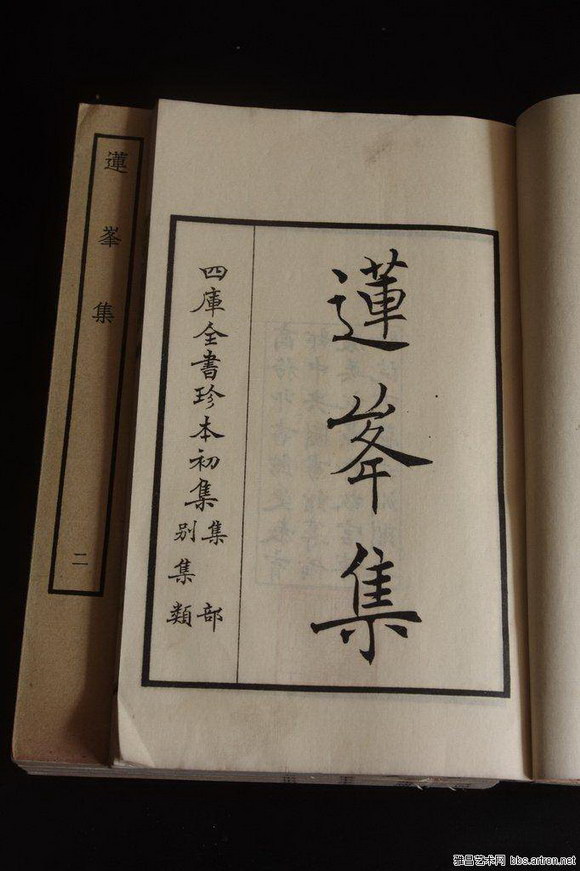 蓮峯集
四庫全書珍本初集
集部
別集類
蓮峯集
二
雅昌艺术网 bbs.artron.net